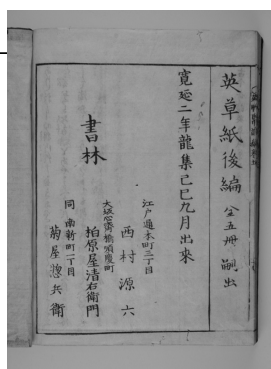 英草紙後編 全五冊 嗣出
寛延二年龍集己巳九月出来
江戸通本町三丁目
西村源六
書林
大坂心斎橋順慶町
柏原屋清右衛門
同 南新町一丁目
菊屋惣兵衛